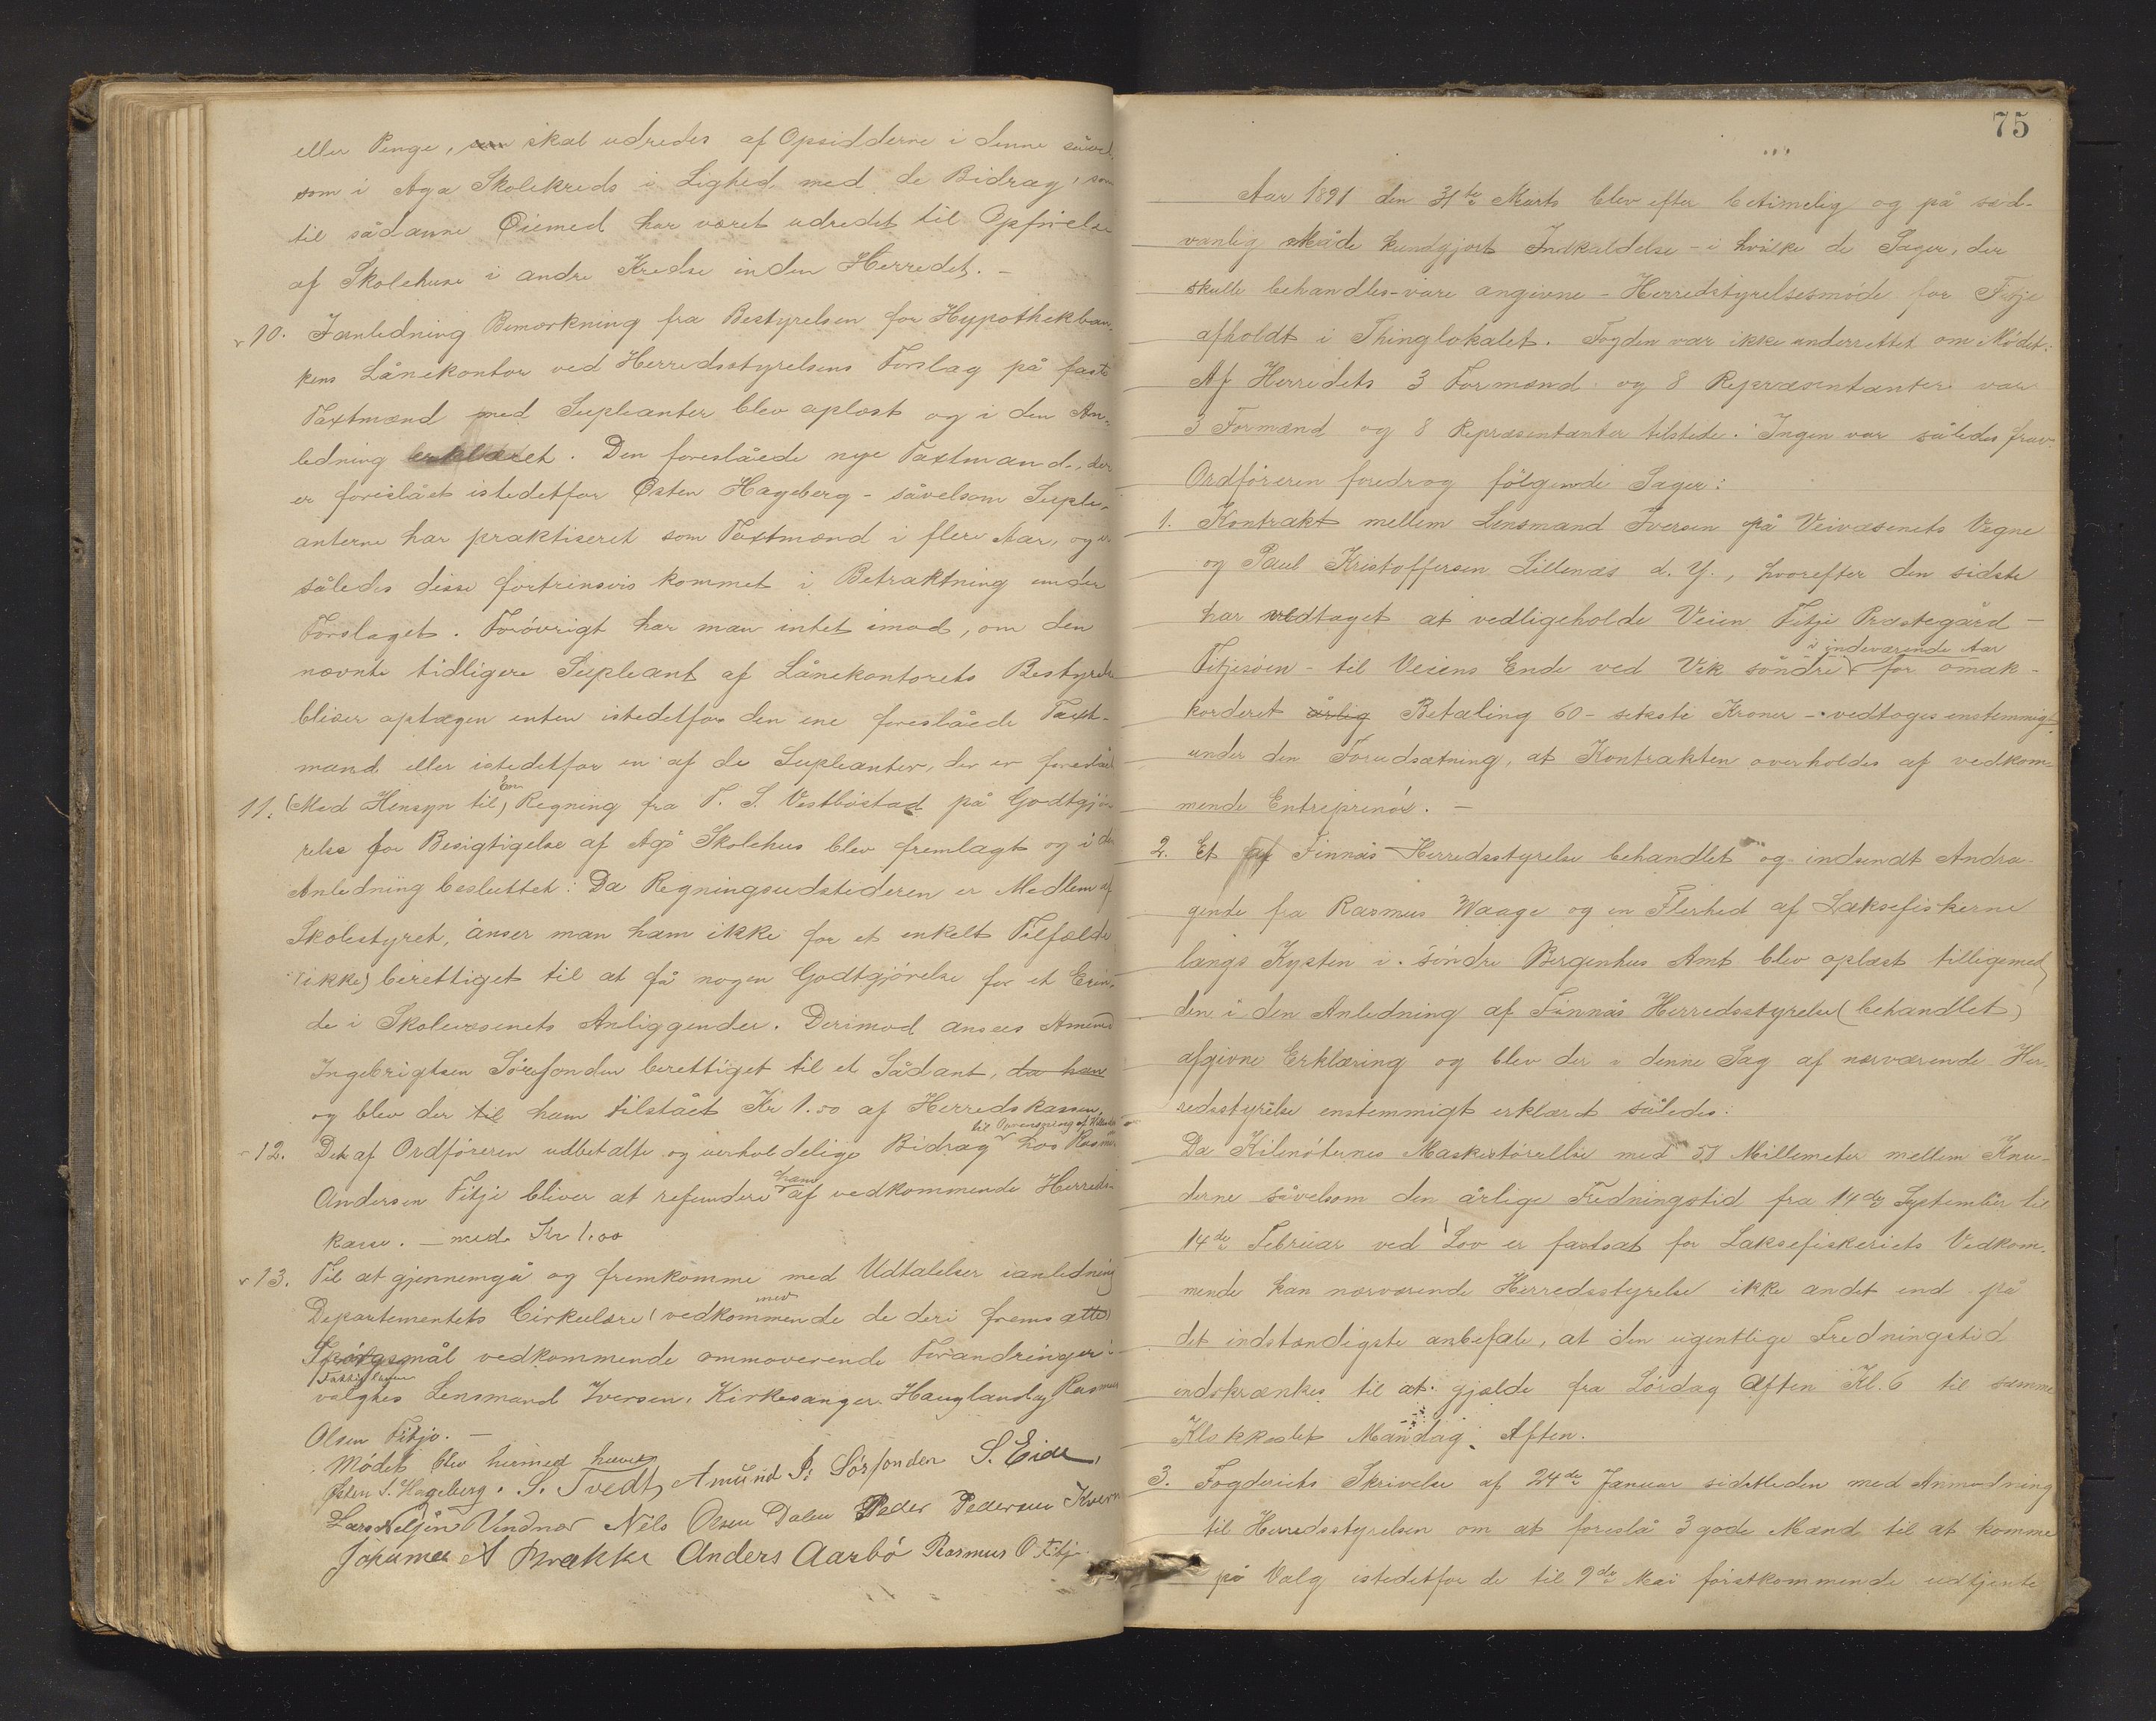 eller Penge, som skal udredes af Opsidderne i denne såvel-
som i Aga Skolekreds i Lighed med de Bidrag, som
til sådanne Øiemed har været udredet til Opførelse
af Skolehuse i andre Kredse inden Herredet. -
10. Ianledning Bemærkning fra Bestyrelsen for Hypothekban-
kens Lånekontor ved Herredsstyrelsens Forslag på faste
Taxtmænd med Supleanter blev oplæst og i den An-
ledning erklæret. Den foreslåede nye Taxtmand, der
er foreslået istedetfor Østen Hageberg - såvelsom Suple-
anterne har praktiseret som Taxtmænd i flere Aar, og er
således disse fortrinsvis kommet i Betraktning under
Forslaget. Forøvrigt har man intet imod, om den
nævnte tidligere Supleant af Lånekontorets Bestyrelse
bliver optagen enten istedetfor den ene foreslåede Taxt-
mand eller istedetfor en af de Supleanter, der er foreslået
11. (Med Hensyn til) En Regning fra T. S. Vestbøstad på Godtgjø-
relse for Besigtigelse af Agø Skolehus blev fremlagt og i den
Anledning besluttet: Da Regningsudstederen er Medlem af
Skolestyret, anser man ham ikke for et enkelt Tilfælde
(ikke) berettiget til at få nogen Godtgjørelse for et Erin-
de i Skolevæsenets Anliggender. Derimod ansees Amund
Ingebrigtsen Sørfonden berettiget til et Sådant, da han
og blev der til ham tilstået Kr 1.00 af Herredskassen.
12. Det af Ordføreren udbetalte og uerholdelige Bidrag til Oprensning af hos Rasmus
Andersen Fitje bliver at refundere ham af vedkommende Herreds-
kasse. - med Kr 1.00
13. Til at gjennemgå og fremkomme med Udtalelser ianledning
Departementets Cirkulære (vedkommende med de deri fremsatte)
Spørgsmål vedkommende ommoverende Forandringer i
valgtes Lensmand Iversen, Kirkesanger Haugland og Rasmus
Olsen Fitje. -
Mødet blev hermed hævet
Østen S. Hageberg. S. Tvedt, Amund I. Sørfonden S. Eide,
Lars Neljen Vindnes Nels Olsen Dalen Peder Pedersen Kvern
Johannes A Brakke Anders Aarbø Rasmus O Fitje
75
Aar 1891 den 31te Marts blev efter betimelig og på sæd-
vanlig Måde kundgjort Indkaldelse - i hvilke de Sager, der
skulle behandles - vare angivne - Herredstyrelsesmøde for Fitje
afholdt i Thinglokalet. Fogden var ikke underrettet om Mødet.
Af Herredets 3 Formænd og 8 Repræsentanter var
3 Formænd og 8 Repræsentanter tilstede. Ingen var således frav.
Ordføreren foredrog følgende Sager:
1. Kontrakt mellem Lensmand Iversen på Veivæsenets Vegne
og Paul Kristoffersen Lillenæs d. Y., hvorefter den sidste
har vedtaget at vedligeholde Veien Fitje Præstegård -
Fitjesøen - til Veiens Ende ved Vik søndre i indeværende Aar for omak-
korderet årlig Betaling 60 - sekste Kroner - vedtoges enstemmigt
under den Forudsætning, at Kontrakten overholdes af vedkom-
mende Entreprenør. -
2. Et af Finnås Herredsstyrelse behandlet og indsendt Andra-
gende fra Rasmus Waage og en Flerhed af Laksefiskerne
langs Kysten i søndre Bergenhus Amt blev oplæst tilligemed
den i den Anledning af Finnås Herredsstyrelse (behandlet)
afgivne Erklæring og blev der i denne Sag af nærværende Her-
redsstyrelse enstemmigt erklæret således:
Da Kilenøternes Maskestørrelse med 57 Millemeter mellem Knu-
derne såvelsom den årlige Fredningstid fra 14de September til
14de Februar ved Lov er fastsat for Laksefiskeriets Vedkom-
mende kan nærværende Herredsstyrelse ikke andet end på
det indstændigste anbefale, at den ugentlige Fredningstid
indskrænkes til at gjælde fra Lørdag Aften Kl. 6 til samme
Klokkeslet Mandag Aften.
3. Fogderiets Skrivelse af 24de Januar sidstleden med Anmodning
til Herredsstyrelsen om at foreslå 3 gode Mænd til at komme
på Valg istedetfor de til 9de Mai førstkommende udtjente